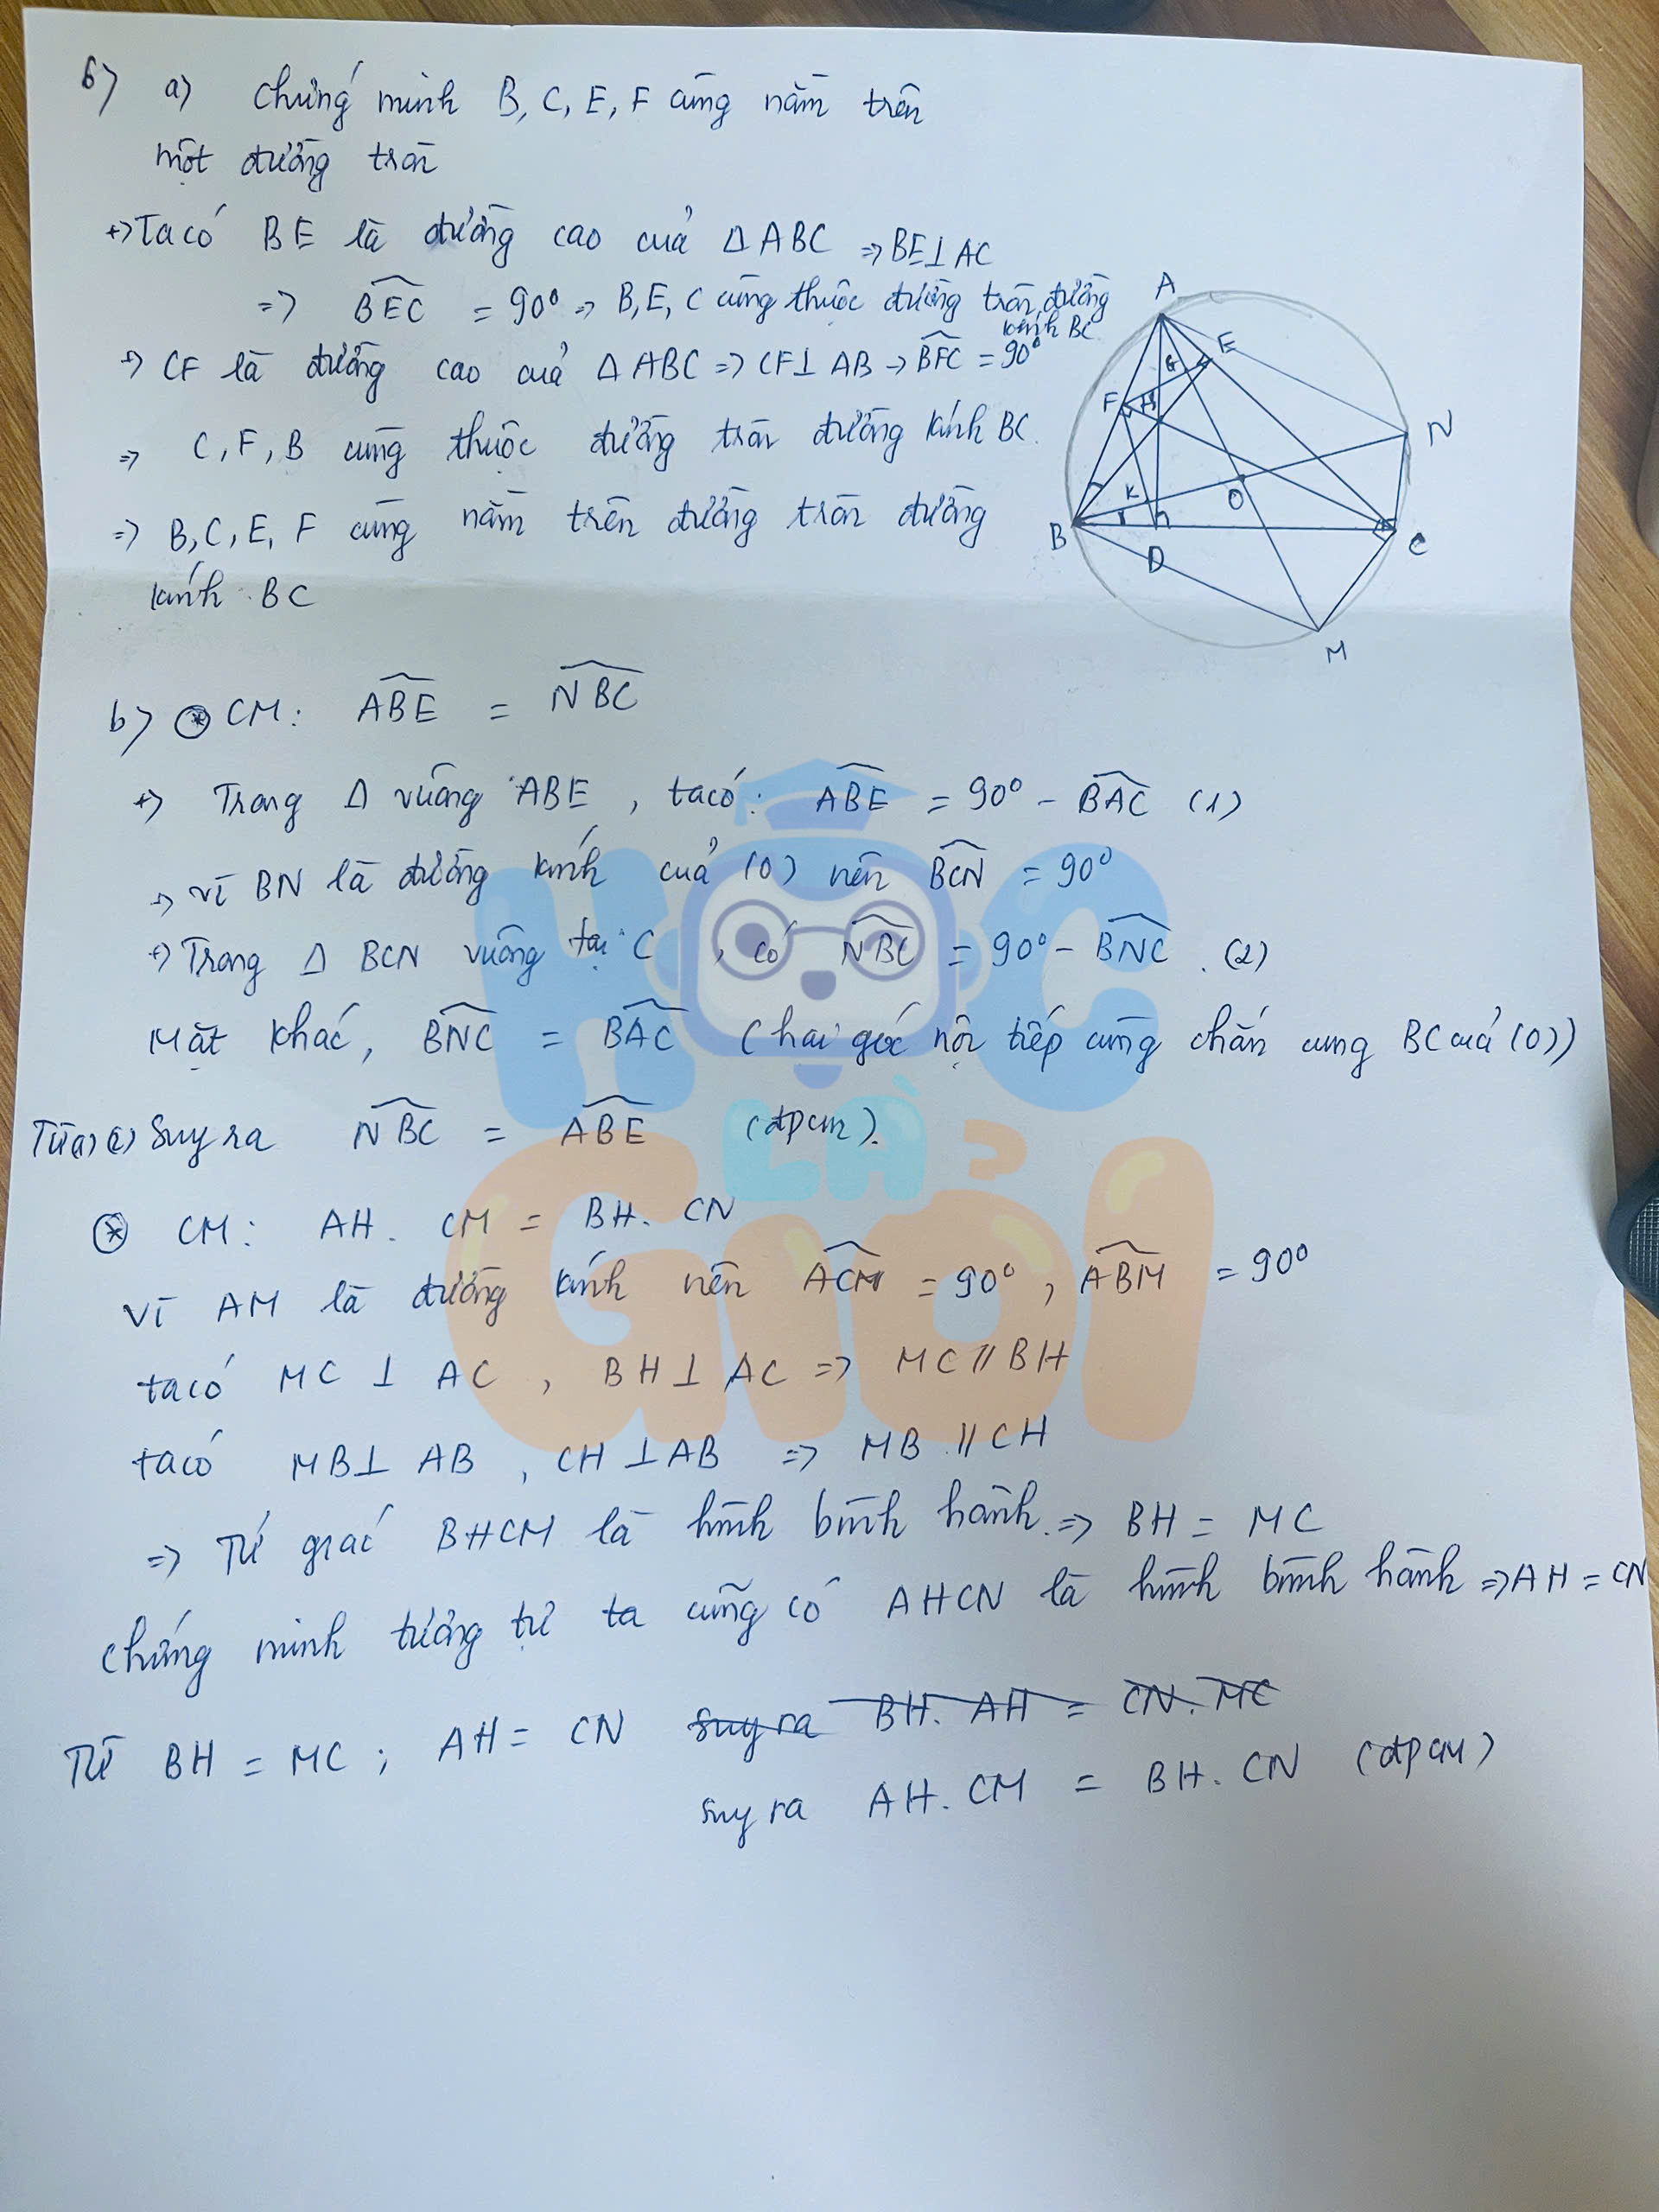 6) a) Chứng minh B, C, E, F cùng nằm trên
một đường tròn
+) Ta có BE là đường cao của Δ ABC => BE⊥AC
=> \widehat{BEC} = 90° => B, E, C cùng thuộc đường tròn đường kính BC
+) CF là đường cao của Δ ABC => CF⊥ AB → \widehat{BFC} = 90°
=> C, F, B cùng thuộc đường tròn đường kính BC.
=> B, C, E, F cùng nằm trên đường tròn đường
kính BC
A
E
G
F
H
N
K
O
B
I
D
C
M
b) * CM: \widehat{ABE} = \widehat{NBC}
+) Trong Δ vuông ABE, ta có: \widehat{ABE} = 90° - \widehat{BAC} (1)
+) vì BN là đường kính của (O) nên \widehat{BCN} = 90°
+) Trong Δ BCN vuông tại C, có \widehat{NBC} = 90° - \widehat{BNC}. (2)
Mặt khác, \widehat{BNC} = \widehat{BAC} (hai góc nội tiếp cùng chắn cung BC của (O))
Từ (1) (2) Suy ra \widehat{NBC} = \widehat{ABE} (đpcm).
* CM: AH. CM = BH. CN
Vì AM là đường kính nên \widehat{ACM} = 90°, \widehat{ABM} = 90°
ta có MC ⊥ AC, BH⊥ AC => MC // BH
ta có MB⊥ AB, CH ⊥AB => MB // CH
=> Tứ giác BHCM là hình bình hành. => BH = MC
chứng minh tương tự ta cũng có AHCN là hình bình hành => AH = CN
Từ BH = MC; AH = CN suy ra BH. AH = CN. MC
suy ra AH. CM = BH. CN (đpcm)
HỌC
LÀ
GIỎI